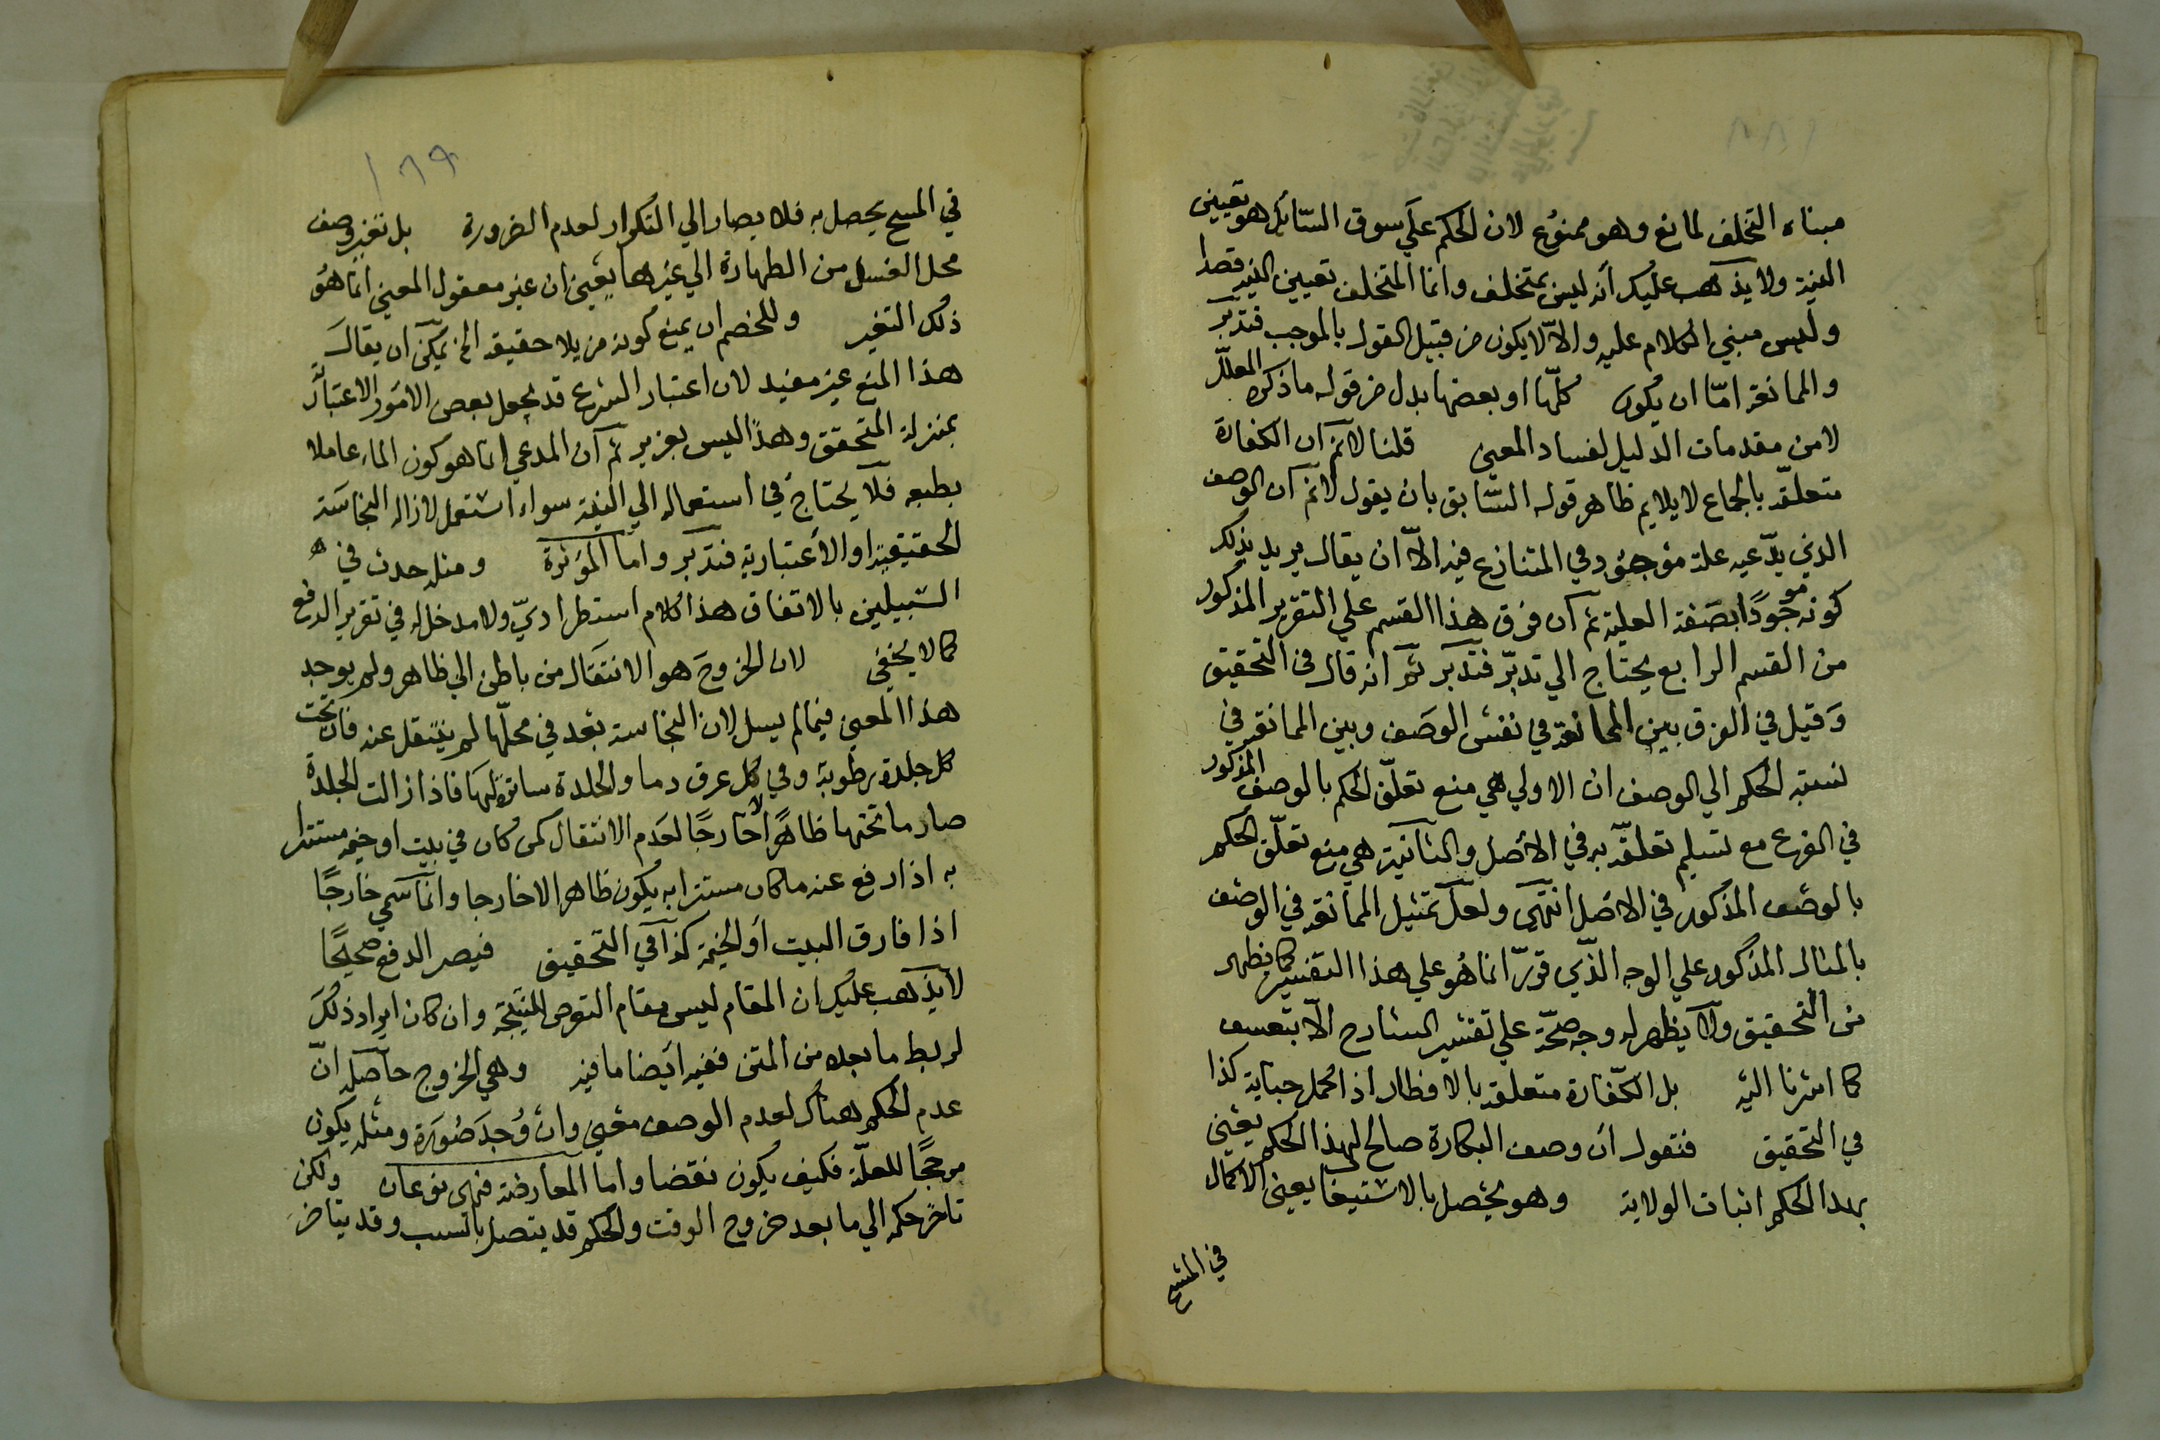 مبناه التخلف لمانع وهو ممنوع لان الحكم علي سوق السائل هو تعيين
النية ولا يذهب عليك انه ليس بمتخلف وانما المتخلف تعيين النية قصدا
وليس مبني الكلام عليه والا لا يكون من قبيل القول بالموجب فتدبر
والممانعة امّا ان يكون كلّها او بعضها بدل من قوله ما ذكره المعلّل
لا من مقدمات الدليل لفساد المعني قلنا لا نم ان الكفارة
متعلقة بالجماع لا يلايم ظاهر قوله السّابق بان يقول لا نم ان الوصف
الذي يدّعيه علة موجود في المتنازع فيه الاّ ان يقال يريد بذلك
كونه موجودًا بصفة العلية ثم ان فرق هذا القسم علي التقرير المذكور
من القسم الرابع يحتاج الي تدبّر فتدبر ثم انه قال في التحقيق
وقيل في الفرق بين الممانعة في نفس الوصف وبين الممانعة في
نسبة الحكم الي الوصف ان الاولي هي منع تعلّق الحكم بالوصف المذكور
في الفرع مع تسليم تعلقه به في الاصل والثانية هي منع تعلّق الحكم
بالوصف المذكور في الاصل انتهي ولعل تمثيل الممانعة في الوصف
بالمثال المذكور علي الوجه الذّي قررّ انما هو علي هذا التفسير كما يظهر
من التحقيق ولا يظهر له وجه صحّة علي تفسير الشارح الاّ بتعسف
كما اشرنا اليه بل الكفّارة متعلقة بالافطار اذا كمل جناية كذا
في التحقيق فنقول ان وصف البكارة صالح لهذا الحكم يعني
بهذا الحكم اثبات الولاية وهو يحصل بالاستيفا يعني الاكمال
في المسح
١٨٩
في المسح يحصل به فلا يصار الي التكرار لعدم الضرورة بل تغير وصف
محل الغسل من الطهارة الي غيرها يعني ان غير معقول المعني انما هو
ذلك التغير وللخصم ان يمنع كونه مزيلا حقيقة الخ يمكن ان يقال
هذا المنع غير مفيد لان اعتبار الشرع قد يجعل بعض الامور الاعتباريّة
بمنزلة المتحقق وهذا ليس بعزيز ثم ان المدعي انما هو كون الماء عاملا
بطبعه فلا يحتاج في استعماله الي النية سواء استعمل لازالة النجاسة
الحقيقية او الاعتبارية فتدبر واما المؤثرة ومثله حدث في
السّبيلين بالاتفاق هذا كلام استطراديّ ولا مدخل له في تقرير الدفع
كما لا يخفي لان الخروج هو الانتقال من باطن الي ظاهر ولم يوجد
هذا المعني فيما لم يسل لان النجاسة بعد في محلّها لم ينتقل عنه فان تحت
كل جلدة رطوبة وفي كل عرق دما والجلدة ساترة لها فاذا زالت الجلدة
صار ما تحتها ظاهرًا لا خارجًا لعدم الانتقال كمن كان في بيت او خيمة مستترا
به اذا رفع عنه ما كان مستترا به يكون ظاهرا لا خارجا وانما سمي خارجًا
اذا فارق البيت او الخيمة كذا في التحقيق فيصر الدفع صحيحًا
لا يذهب عليك ان المقام ليس مقام التعرض للنتيجة وان كان ايراد ذلك
لربط ما بعده من المتن ففيه ايضا ما فيه وهي الخروج حاصله انّ
عدم الحكم هناك لعدم الوصف معني وان وُجد صورة ومثله يكون
مرجحًا للعلّة فكيف يكون نقضا واما المعارضة فهي نوعان ولكن
تاخر حكمه الي ما بعد خروج الوقت والحكم قد يتصل بالسبب وقد يتاخر